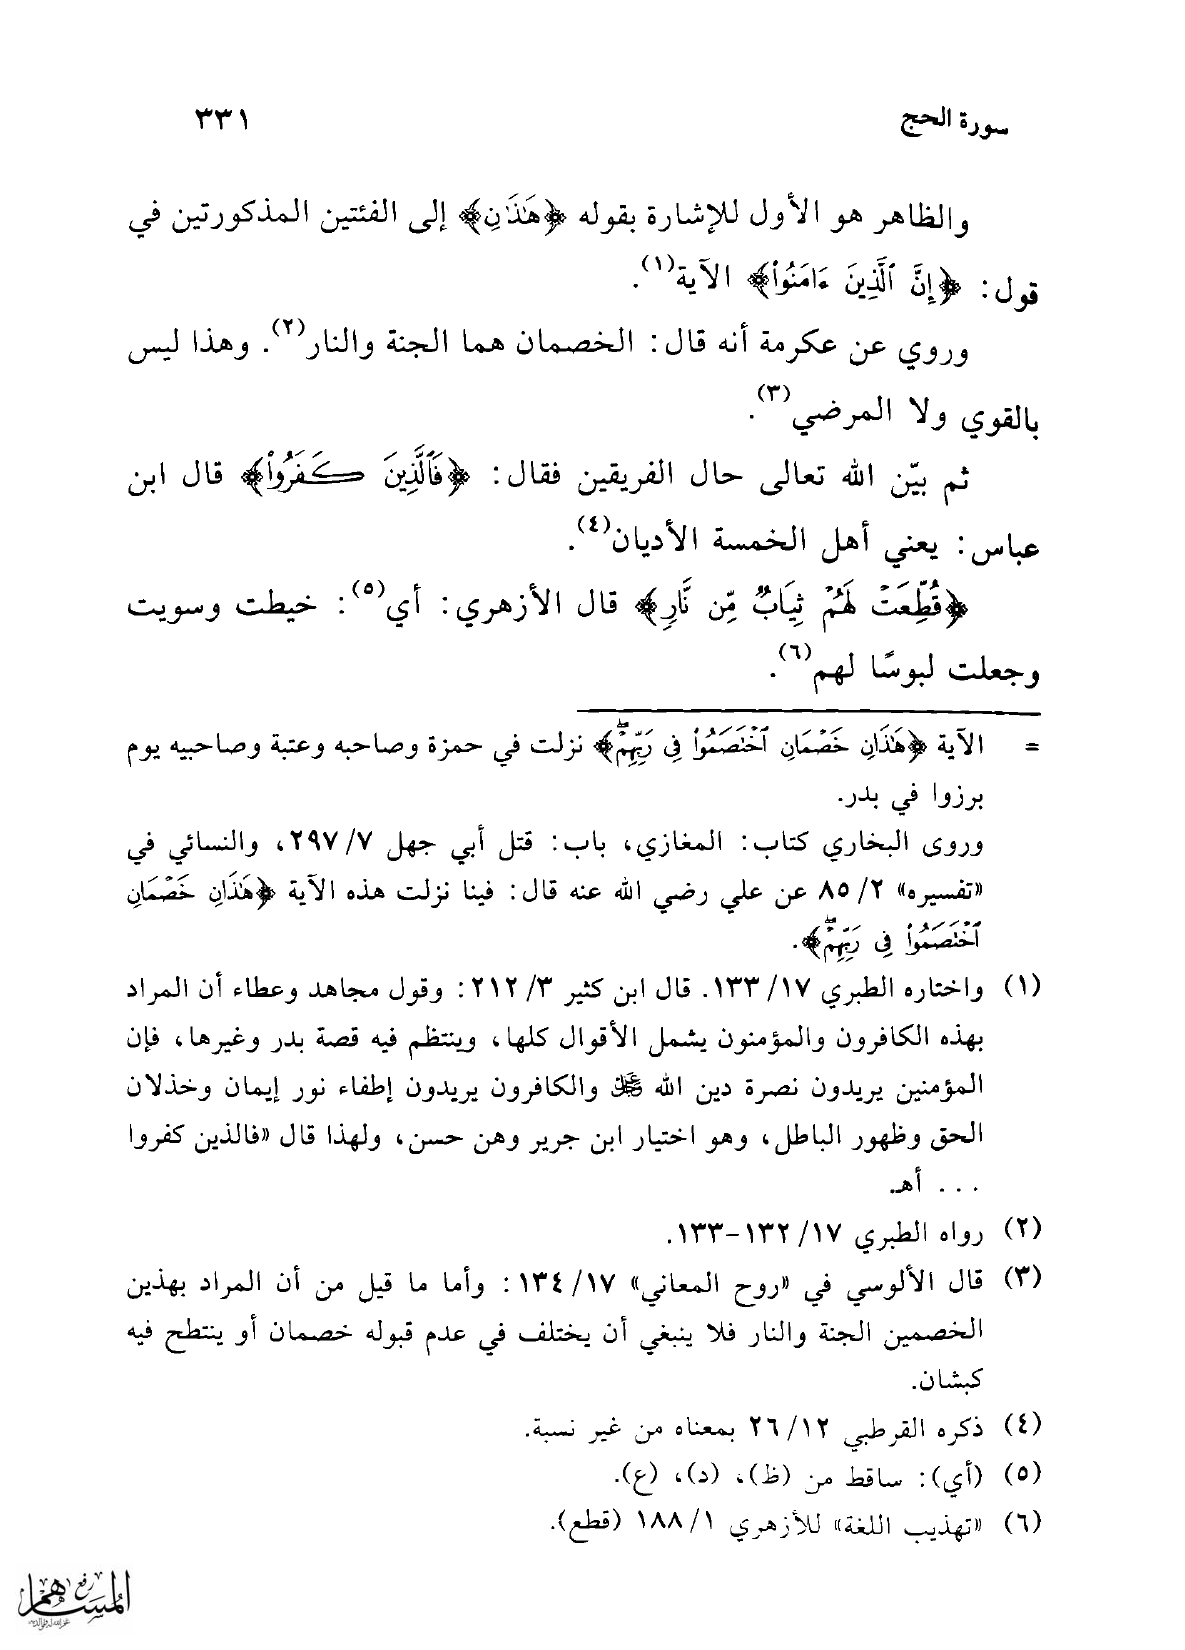 سورة الحج
٣٣١
والظاهر هو الأول للإشارة بقوله ﴿هَٰذَانِ﴾ إلى الفئتين المذكورتين في
قول: ﴿إِنَّ ٱلَّذِينَ ءَامَنُواْ﴾ الآية(١).
وروي عن عكرمة أنه قال: الخصمان هما الجنة والنار(٢). وهذا ليس
بالقوي ولا المرضي(٣).
ثم بيّن الله تعالى حال الفريقين فقال: ﴿فَٱلَّذِينَ كَفَرُواْ﴾ قال ابن
عباس: يعني أهل الخمسة الأديان(٤).
﴿قُطِّعَتۡ لَهُمۡ ثِيَابٌ مِّن نَّارٍ﴾ قال الأزهري: أي(٥): خيطت وسويت
وجعلت لبوسًا لهم(٦).
= الآية ﴿هَٰذَانِ خَصۡمَانِ ٱخۡتَصَمُواْ فِي رَبِّهِمۡۖ﴾ نزلت في حمزة وصاحبه وعتبة وصاحبيه يوم
برزوا في بدر.
وروى البخاري كتاب: المغازي، باب: قتل أبي جهل ٢٩٧/٧، والنسائي في
«تفسيره» ٨٥/٢ عن علي رضي الله عنه قال: فينا نزلت هذه الآية ﴿هَٰذَانِ خَصۡمَانِ
ٱخۡتَصَمُواْ فِي رَبِّهِمۡۖ﴾.
(١) واختاره الطبري ١٣٣/١٧. قال ابن كثير ٢١٢/٣: وقول مجاهد وعطاء أن المراد
بهذه الكافرون والمؤمنون يشمل الأقوال كلها، وينتظم فيه قصة بدر وغيرها، فإن
المؤمنين يريدون نصرة دين الله ﷻ والكافرون يريدون إطفاء نور إيمان وخذلان
الحق وظهور الباطل، وهو اختيار ابن جرير وهن حسن، ولهذا قال «فالذين كفروا
... أهـ
(٢) رواه الطبري ١٣٢/١٧-١٣٣.
(٣) قال الألوسي في «روح المعاني» ١٣٤/١٧: وأما ما قيل من أن المراد بهذين
الخصمين الجنة والنار فلا ينبغي أن يختلف في عدم قبوله خصمان أو ينتطح فيه
كبشان.
(٤) ذكره القرطبي ٢٦/١٢ بمعناه من غير نسبة.
(٥) (أي): ساقط من (ظ)، (د)، (ع).
(٦) «تهذيب اللغة» للأزهري ١٨٨/١ (قطع).